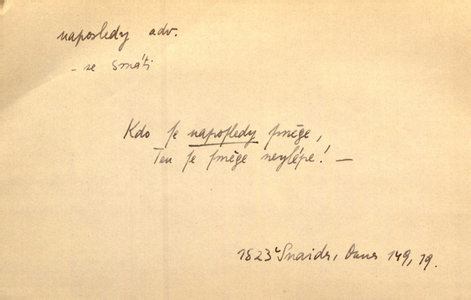 naposledy adv.
- se smáti
Kdo ſe napoſledy ſměge,
Ten ſe ſměge neylépe! —
1823 Šnaidr, Okus 149, 19.